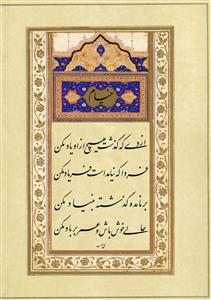 خیام
از دی که گذشت هیچ ازو یاد مکن
فردا که نیامدست فریاد مکن
برنامده و گذشته بنیاد مکن
حالی خوش باش و عمر بر باد مکن